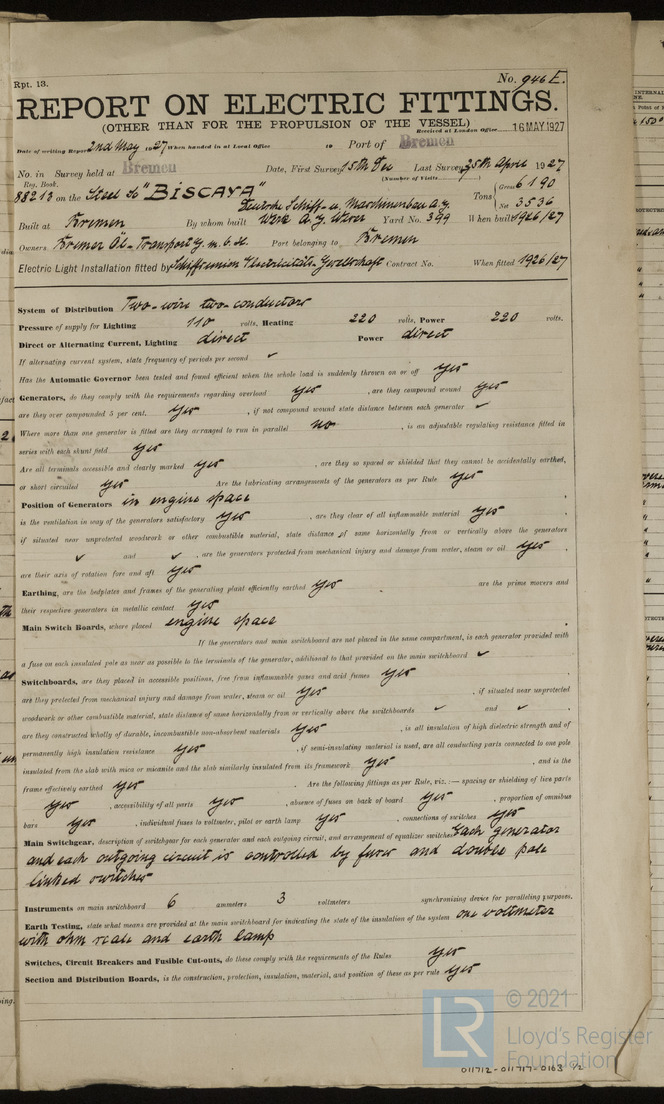 Rpt. 13.
No. 946 E.
REPORT ON ELECTRIC FITTINGS.
(OTHER THAN FOR THE PROPULSION OF THE VESSEL)
Received at London Office 16 MAY 1927
Date of writing Report 2nd May 1927 When handed in at Local Office 19 Port of Bremen
No. in Survey held at Bremen Date, First Survey 15th Dec Last Survey 25th April 1927
Reg. Book. (Number of Visits
88213 on the Steel Sc "BISCAYA" Tons { Gross 6190
Deutsche Schiff-u. Maschinenbau A.G. Net 3536
Built at Bremen By whom built Werk A.G. Weser Yard No. 399 When built 1926/27
Owners Bremer Öl-Transport G.m.b.H. Port belonging to Bremen
Electric Light Installation fitted by Schiffsunion Electricitäts-Gesellschaft Contract No. When fitted 1926/27
System of Distribution Two-wire two-conductors
Pressure of supply for Lighting 110 volts, Heating 220 volts, Power 220 volts.
Direct or Alternating Current, Lighting direct Power direct
If alternating current system, state frequency of periods per second ✓
Has the Automatic Governor been tested and found efficient when the whole load is suddenly thrown on or off yes
Generators, do they comply with the requirements regarding overload yes , are they compound wound yes
are they over compounded 5 per cent. yes , if not compound wound state distance between each generator ✓
Where more than one generator is fitted are they arranged to run in parallel no , is an adjustable regulating resistance fitted in
series with each shunt field yes
Are all terminals accessible and clearly marked yes , are they so spaced or shielded that they cannot be accidentally earthed,
or short circuited yes Are the lubricating arrangements of the generators as per Rule yes
Position of Generators in engine space
is the ventilation in way of the generators satisfactory yes , are they clear of all inflammable material yes
if situated near unprotected woodwork or other combustible material, state distance of same horizontally from or vertically above the generators
✓ and ✓ , are the generators protected from mechanical injury and damage from water, steam or oil yes
are their axis of rotation fore and aft yes
Earthing, are the bedplates and frames of the generating plant efficiently earthed yes are the prime movers and
their respective generators in metallic contact yes
Main Switch Boards, where placed engine space
If the generators and main switchboard are not placed in the same compartment, is each generator provided with
a fuse on each insulated pole as near as possible to the terminals of the generator, additional to that provided on the main switchboard ✓
Switchboards, are they placed in accessible positions, free from inflammable gases and acid fumes yes
are they protected from mechanical injury and damage from water, steam or oil yes , if situated near unprotected
woodwork or other combustible material, state distance of same horizontally from or vertically above the switchboards ✓ and ✓
are they constructed wholly of durable, incombustible non-absorbent materials yes , is all insulation of high dielectric strength and of
permanently high insulation resistance yes , if semi-insulating material is used, are all conducting parts connected to one pole
insulated from the slab with mica or micanite and the slab similarly insulated from its framework yes , and is the
frame effectively earthed yes Are the following fittings as per Rule, viz.:— spacing or shielding of live parts
yes , accessibility of all parts yes , absence of fuses on back of board yes , proportion of omnibus
bars yes , individual fuses to voltmeter, pilot or earth lamp yes , connections of switches yes
Main Switchgear, description of switchgear for each generator and each outgoing circuit, and arrangement of equalizer switches Each generator
and each outgoing circuit is controlled by fuses and double pole
linked switches
Instruments on main switchboard 6 ammeters 3 voltmeters synchronising device for paralleling purposes.
Earth Testing, state what means are provided at the main switchboard for indicating the state of the insulation of the system one voltmeter
with ohm scale and earth lamp
Switches, Circuit Breakers and Fusible Cut-outs, do these comply with the requirements of the Rules yes
Section and Distribution Boards, is the construction, protection, insulation, material, and position of these as per rule yes
LR
© 2021
Lloyd's Register
Foundation
011712-011717-0163 1/2